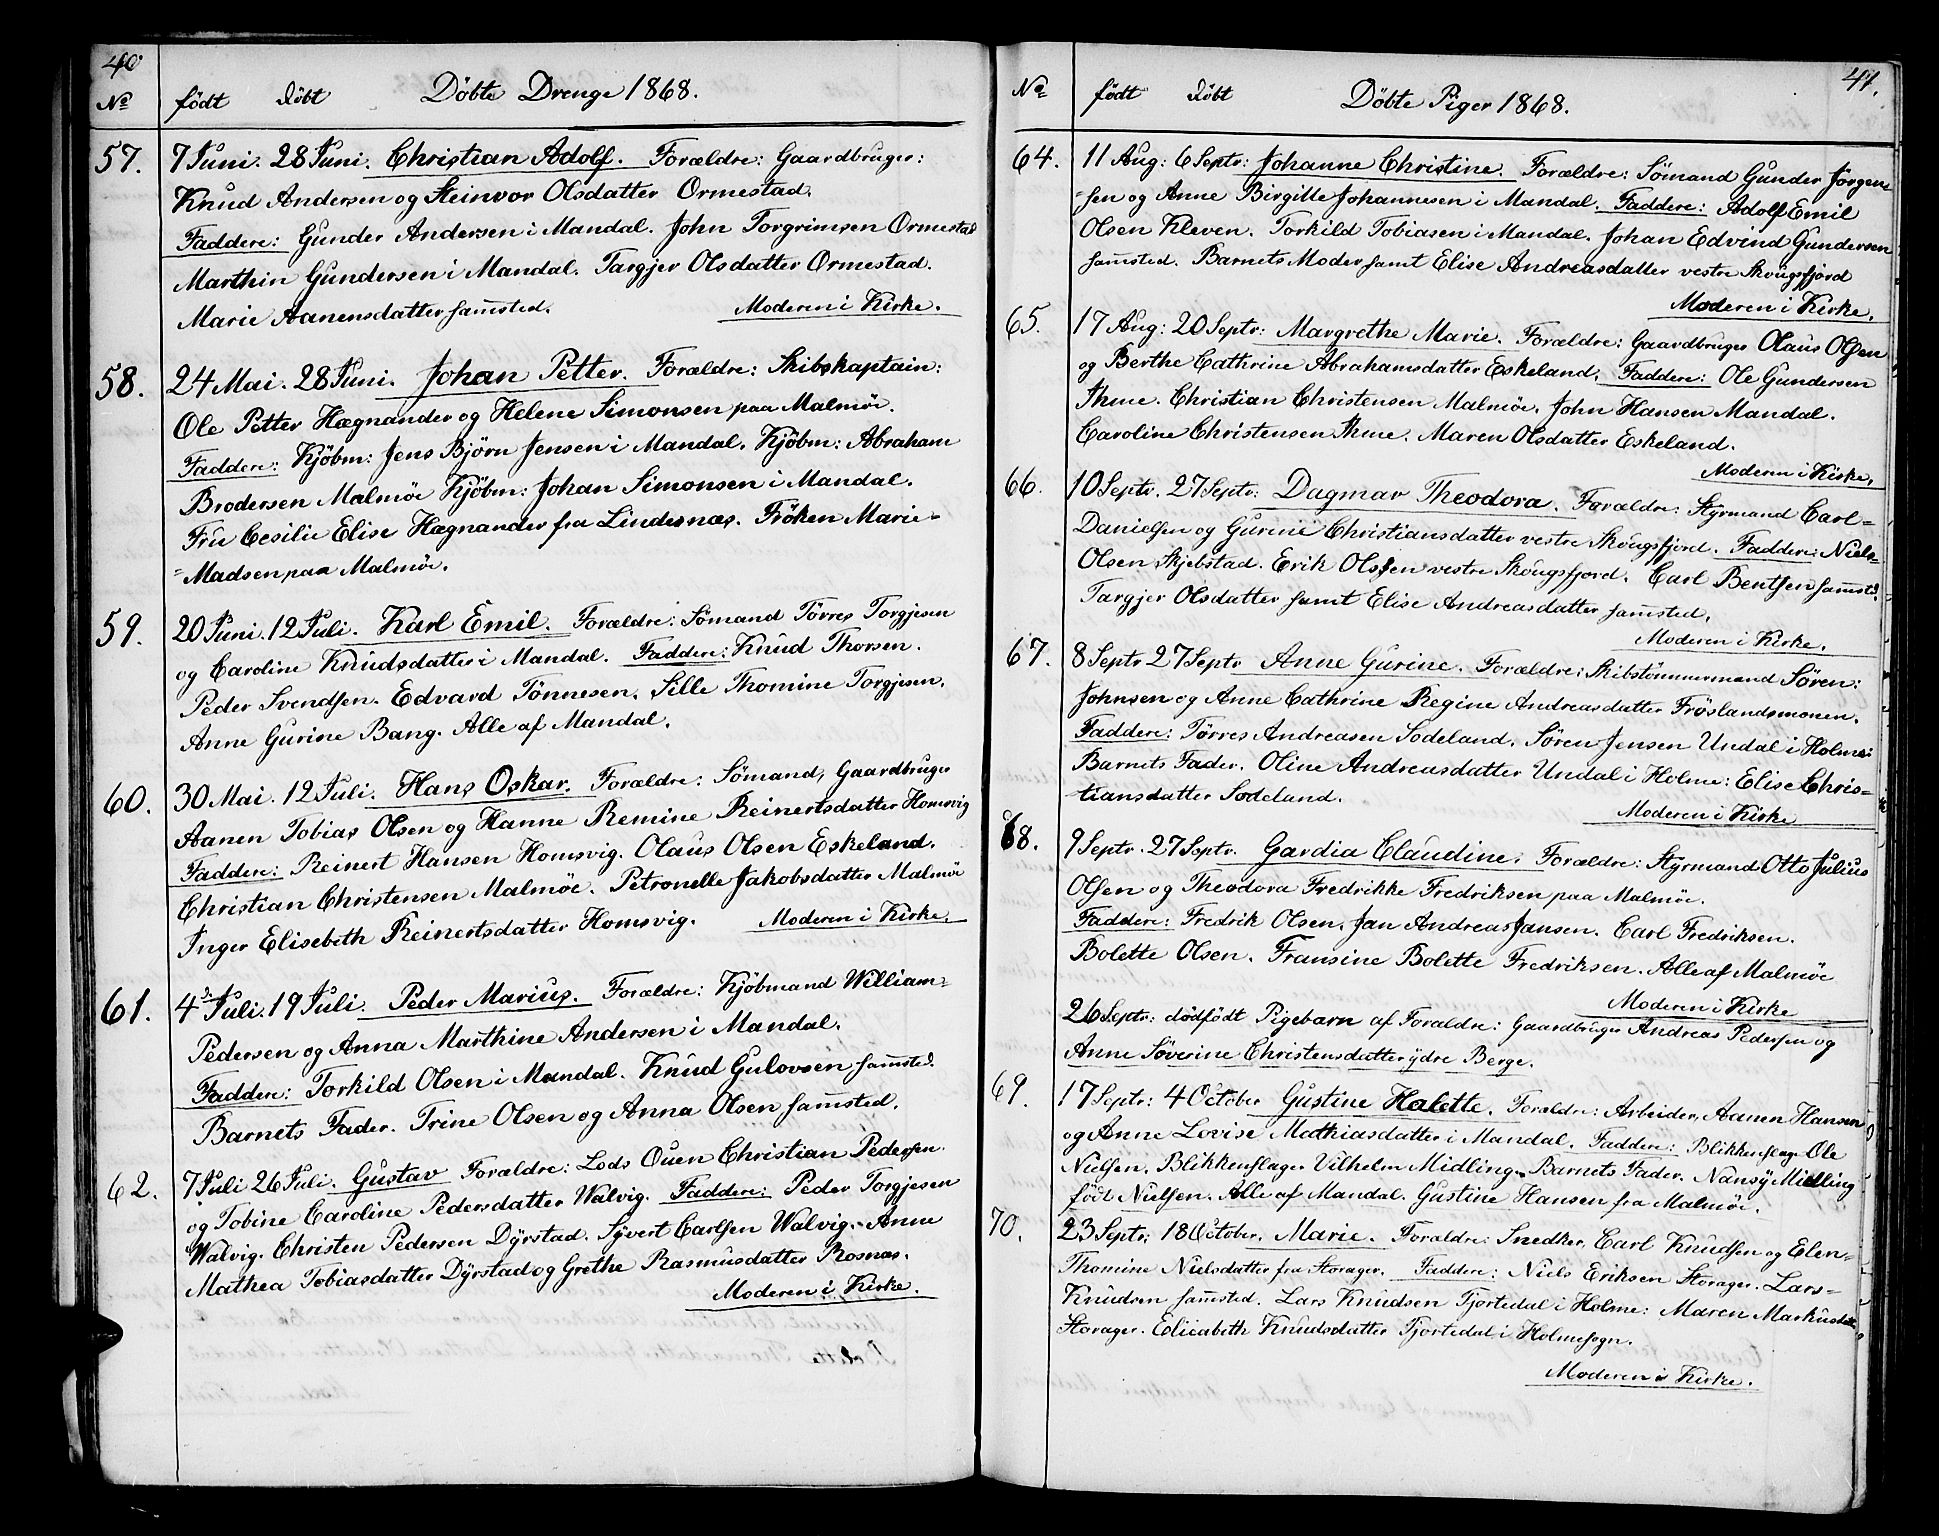 40
No födt döbt Döbte Drenge 1868.
57. 7 Juni. 28 Juni. Christian Adolf. Forældre: Gaardbruger:
Knud Andersen og Steinvor Olsdatter Ormestad.
Faddere: Gunder Andersen i Mandal. John Torgrimsen Ormestad
Marthin Gundersen i Mandal. Targjer Olsdatter Ormestad.
Marie Aanensdatter samsted. Moderen i Kirke.
58. 24 Mai. 28 Juni. Johan Petter. Forældre: Skibskaptain:
Ole Petter Hægnander og Helene Simonsen paa Malmöe.
Faddere: Kjöbm: Jens Björn Jensen i Mandal. Kjöbm: Abraham
Brodersen Malmöe Kjöbm: Johan Simonsen i Mandal.
Frú Cesilie Elise Hægnander fra Lindesnæs. Fröken Marie=
=Madsen paa Malmöe.
59. 20 Juni. 12 Juli. Karl Emil. Forældre: Sömand Törres Torgjesen
og Caroline Knúdsdatter i Mandal. Faddere: Knud Thorsen.
Peder Svendsen. Edvard Tönnesen. Sille Thomine Torgjesen.
Anne Gurine Bang. Alle af Mandal.
60. 30 Mai. 12 Juli. Hans Oskar. Forældre: Sömand, Gaardbruger
Aanen Tobias Olsen og Hanne Remine Reinertsdatter Homsvig
Faddere: Reinert Hansen Homsvig. Olaus Olsen Eskeland.
Christian Christensen Malmöe. Petronelle Jakobsdatter Malmöe
Inger Elisebeth Reinertsdatter Homsvig. Moderen i Kirke.
61. 4de Juli. 19 Juli. Peder Marius. Forældre: Kjöbmand William=
Pedersen og Anna Marthine Andersen i Mandal.
Faddere: Torkild Olsen i Mandal. Knud Gulovsen samsted.
Barnets Fader. Trine Olsen og Anna Olsen samsted.
62. 7 Juli 26 Juli. Gustav Forældre: Lods Ouen Christian Pedersen.
og Tobine Caroline Pedersdatter Walvig. Faddere: Peder Torgjesen
Walvig. Christen Pedersen Dÿrstad. Sÿvert Carlsen Walvig. Anne
Mathea Tobiasdatter Dÿrstad og Grethe Rasmusdatter Rosnæs.
Moderen i Kirke.
41.
No födt döbt Döbte Piger 1868.
64. 11 Aug: 6 Septr: Johanne Christine. Forældre: Sömand Gunder Jörgen=
=sen og Anne Birgitte Johannesen i Mandal. Faddere: Adolf Emil
Olsen Kleven. Torkild Tobiasen i Mandal. Johan Edvind Gundersen
samsted. Barnets Moder samt Elise Andreasdatter vestre Skougsfjord
Moderen i Kirke.
65. 17 Aug: 20 Septr: Margrethe Marie. Forældre: Gaardbruger Olaus Olsen
og Berthe Cathrine Abrahamsdatter Eskeland. Faddere: Ole Gundersen
Ihme. Christian Christensen Malmöe. John Hansen Mandal.
Caroline Christensen Ihme. Maren Olsdatter Eskeland.
Moderen i Kirke.
66. 10 Septr. 27 Septr: Dagmar Theodora. Forældre: Styrmand Carl=
Danielsen og Gurine Christiansdatter vestre Skougsfjord. Faddere: Niels=
Olsen Skjebstad. Erik Olssen vestre Skougsfjord. Carl Bentsen samsted.
Targjer Olsdatter samt Elise Andreasdatter samsted.
Moderen i Kirke.
67. 8 Septr 27 Septr Anne Gurine. Forældre: Skibstömmermand Sören:
Johnsen og Anne Cathrine Regine Andreasdatter Fröslandsmonen.
Faddere: Törres Andreasen Sodeland. Sören Jensen Undal i Holme:
Barnets Fader. Oline Andreasdatter Undal i Holme: Elise Chris=
tiansdatter Sodeland.
Moderen i Kirke
68. 9 Septr. 27 Septr. Gardia Claudine. Forældre: Styrmand Otto Julius
Olsen og Theodora Fredrikke Fredriksen paa Malmöe.
Faddere: Fredrik Olsen. Jan Andreas Jansen. Carl Fredriksen.
Bolette Olsen. Fransine Bolette Fredriksen. Alle af Malmöe
Moderen i Kirke
26 Septr: dödfödt Pigebarn af Forældre: Gaardbruger Andreas Pedersen og
Anne Söverine Christensdatter ÿdre Berge.
69. 17 Septr: 4 October Gustine Halette. Forældre: Arbeider, Aanen Hansen
og Anne Lovise Mathiasdatter i Mandal. Faddere: Blikkenslager Ole
Nielsen. Blikkenslager Vilhelm Midling. Barnets Fader. Nansÿ Midling
födt Nielsen. Alle af Mandal. Gustine Hansen fra Malmöe.
70. 23 Septr: 18 October. Marie. Forældre: Snedker, Carl Knudsen og Elen=
Thomine Nielsdatter fra Storager. Faddere: Niels Eriksen Storager. Lars=
Knudsen samsted. Lars Knudsen Tjortedal i Holme: Maren Markusdatter
Storager. Elisabeth Knudsdatter Tjortedal i Holmesogn.
Moderen i Kirke.